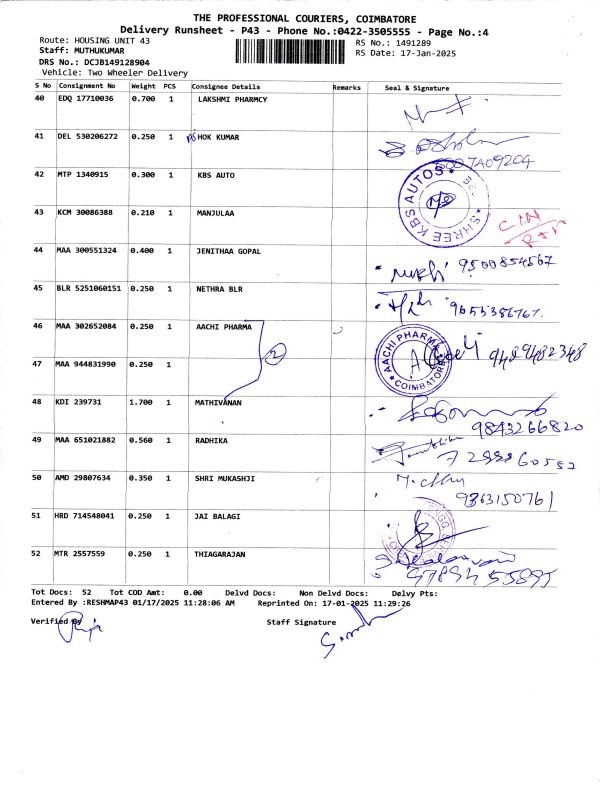 THE PROFESSIONAL COURIERS, COIMBATORE
Delivery Runsheet - P43 - Phone No.:0422-3505555 - Page No.:4
Route: HOUSING UNIT 43
RS No.: 1491289
Staff: MUTHUKUMAR
RS Date: 17-Jan-2025
DRS No.: DCJB149128904
Vehicle: Two Wheeler Delivery
S No Consignment No Weight PCS Consignee Details Remarks Seal & Signature
40 EDQ 17710036 0.700 1 LAKSHMI PHARMCY
41 DEL 530206272 0.250 1 HOK KUMAR
42 MTP 1340915 0.300 1 KBS AUTO
SHREE KBS AUTOS
43 KCM 30086388 0.210 1 MANJULAA
44 MAA 300551324 0.400 1 JENITHAA GOPAL
9500854567
45 BLR 5251060151 0.250 1 NETHRA BLR
9655386767
46 MAA 302652084 0.250 1 AACHI PHARMA
2
AACHI PHARMA COIMBATORE
9489482348
47 MAA 944831990 0.250 1
48 KDI 239731 1.700 1 MATHIVANAN
9843266820
49 MAA 651021882 0.560 1 RADHIKA
50 AMD 29807634 0.350 1 SHRI MUKASHJI
9363150761
51 HRD 714548041 0.250 1 JAI BALAGI
52 MTR 2557559 0.250 1 THIAGARAJAN
Tot Docs: 52 Tot COD Amt: 0.00 Delvd Docs: Non Delvd Docs: Delvy Pts:
Entered By :RESHMAP43 01/17/2025 11:28:06 AM Reprinted On: 17-01-2025 11:29:26
Verified By
Staff Signature